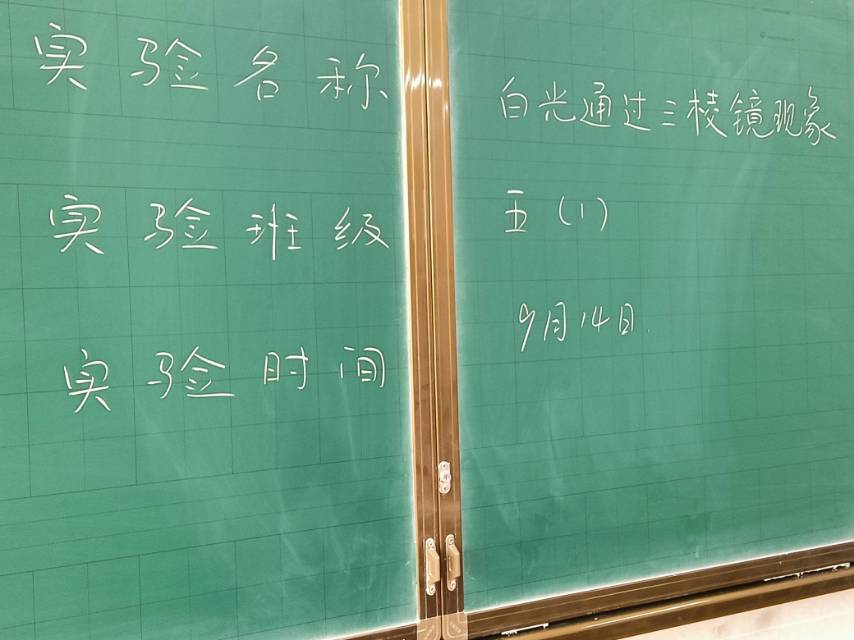 实验名称 白光通过三棱镜现象
实验班级 五(1)
实验时间 9月14日.